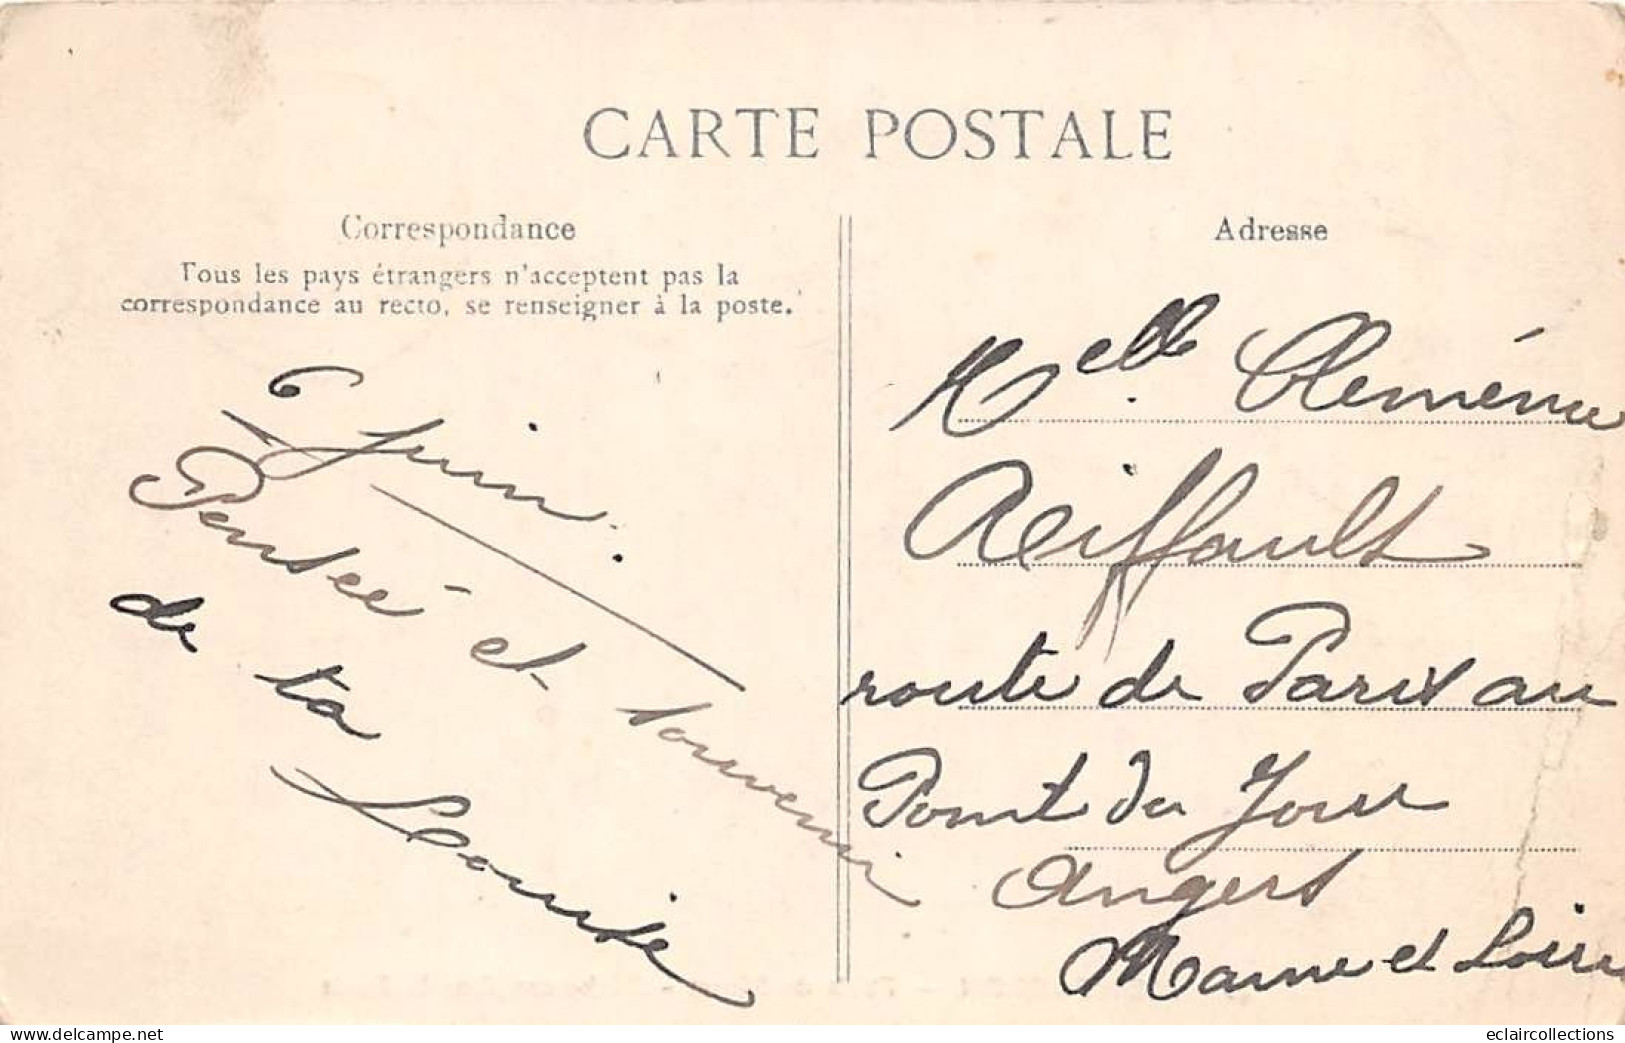 CARTE POSTALE
Correspondance
Tous les pays étrangers n'acceptent pas la
correspondance au recto, se renseigner à la poste.
6 Juin.
Pensée et souvenir
de ta
Louise
Adresse
Melle Clémence
Reiffault
route de Paris au
Point du Jour
Angers
Maine et Loire
delcampe.net
eclaircollections